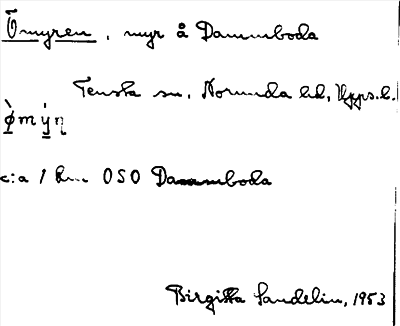 Ömyren, myr å Dammboda
Tensta sn, Norunda hd, Upps. l.
ø̀mýṇ
c:a 1 km OSO Dammboda
Birgitta Sandelin, 1953